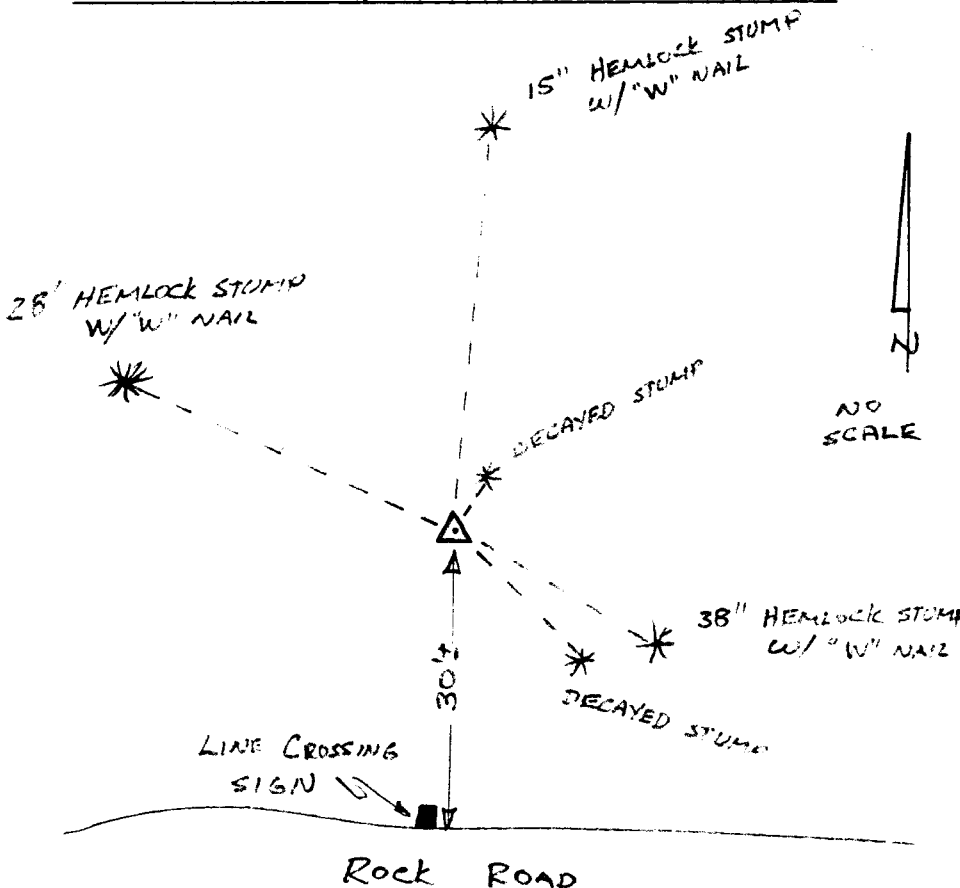 15" HEMLOCK STUMP
W/"W" NAIL
28' HEMLOCK STUMP
W/"W" NAIL
N
NO
SCALE
DECAYED STUMP
38" HEMLOCK STUMP
W/ "W" NAIL
30'±
DECAYED STUMP
LINE CROSSING
SIGN
ROCK ROAD